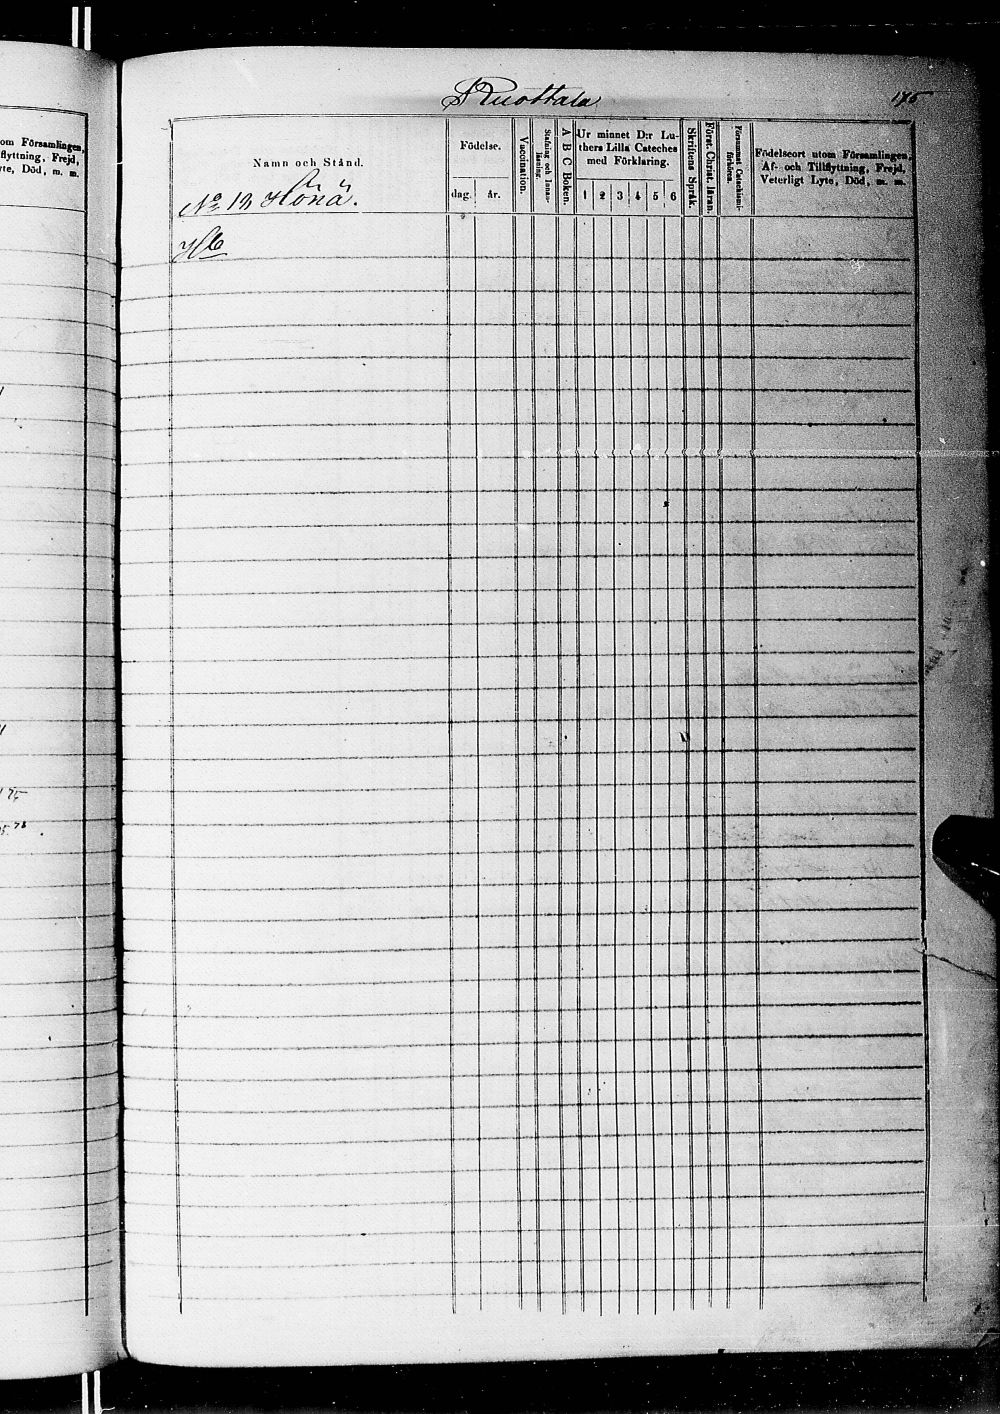 om Församlingen,
flyttning, Frejd,
yte, Död, m. m.
75
75.78
Ruottala
175
Namn och Stånd.
Födelse.
dag.
år.
Vaccination.
Stafning och Innan-
läsning.
A B C Boken.
Ur minnet D:r Lu-
thers Lilla Cateches
med Förklaring.
1 2 3 4 5 6
Skriftens Språk.
Först. Christ. läran.
Försummat Catechismi-
förhören.
Födelseort utom Församlingen,
Af- och Tillflyttning, Frejd,
Veterligt Lyte, Död, m. m.
No 12 Hönä.